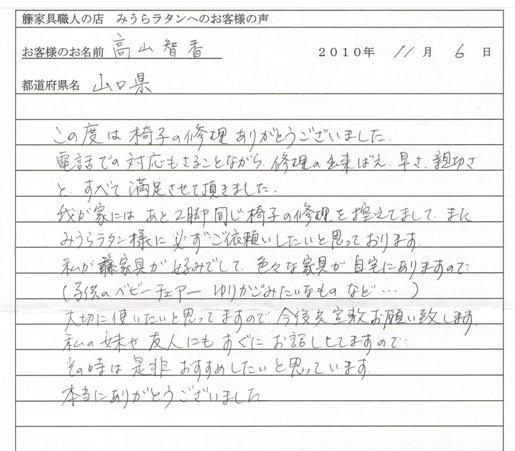 籐家具職人の店 みうらラタンへのお客様の声
お客様のお名前 高山智香 2010年 11月 6日
都道府県名 山口県
この度は椅子の修理ありがとうございました。
電話での対応もさることながら、修理の出来ばえ、早さ、親切さ
と、すべて満足させて頂きました。
我が家にはあと2脚同じ椅子の修理を控えてまして、また
みうらラタン様に必ずご依頼いしたいと思っております。
私が籐家具が好みでして、色々な家具が自宅にありますので
(子供のベビーチェアー ゆりかごみたいなものなど…)
大切に使いたいと思ってますので、今後共宜敷お願い致します。
私の妹や友人にもすぐにお話ししてますので、
その時は是非おすすめしたいと思っています。
本当にありがとうございました